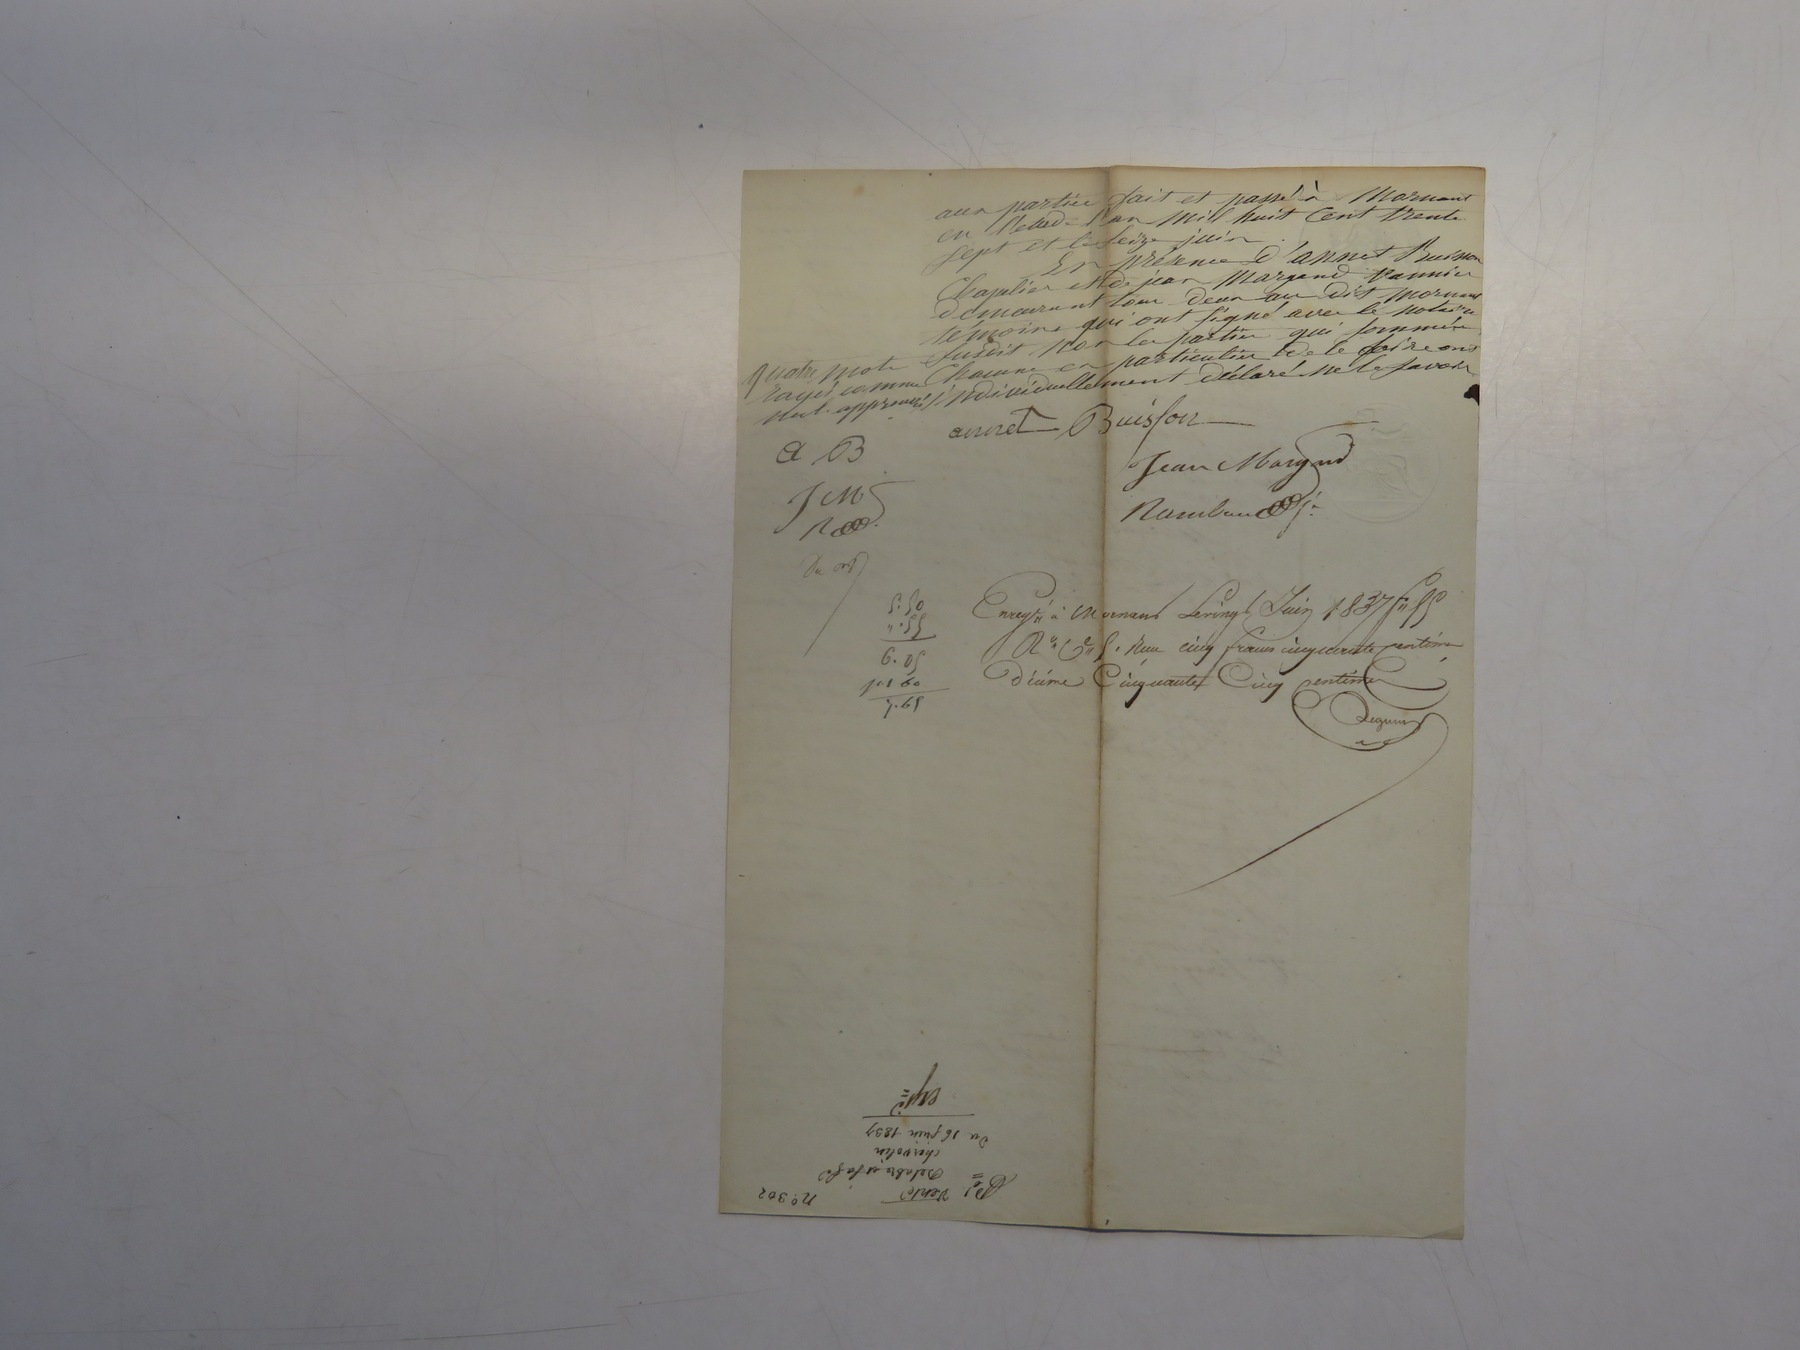 aux parties fait et passé à Mornant
en l'étude l'an mill huit Cent trente
sept et le seize juin.
En présence d'annet Buisson
Chapelier et de jean Margand
demeurant tous deux au dit Mornant
témoins qui ont signé avec le notaire
susdit non les parties qui sommées
Chacune en particulier de le faire ont
individuellement déclaré ne le savoir
Quatre mots
rayés comme
nuls approuvés
annet Buisson
A B
Jean Margand
J M
Enregté à Mornant le vingt Juin 1837 fo
Reçu cinq francs cinquante centimes
Décime Cinquante Cinq centimes
5.50
55
6.05
No 302
Vente
chervolin
Du 16 juin 1837